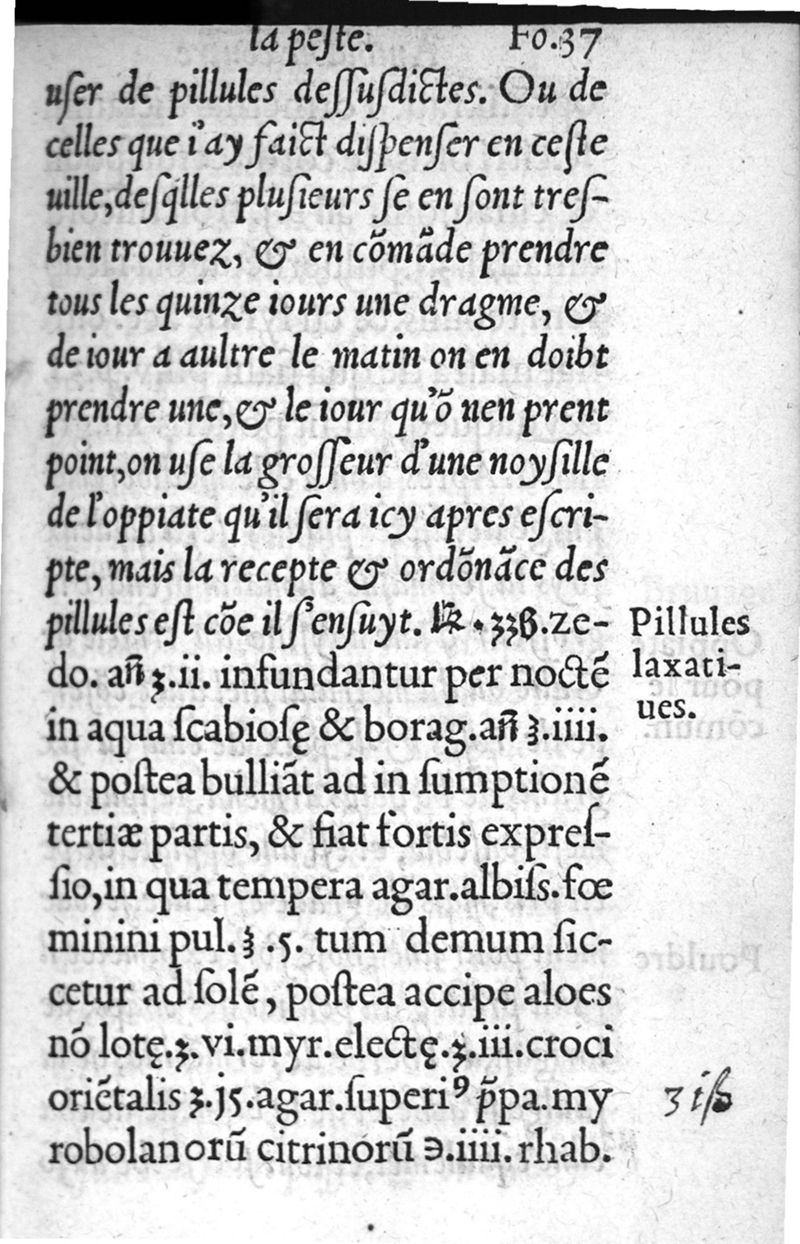 la peſte. Fo.37
uſer de pillules deſſuſdictes. Ou de
celles que i'ay faict diſpenſer en ceſte
uille,deſq̃lles pluſieurs ſe en ſont treſ-
bien trouuez, & en cõmãde prendre
tous les quinze iours une dragme, &
de iour a aultre le matin on en doibt
prendre une,& le iour qu'õ nen prent
point,on uſe la groſſeur d'une noyſille
de l'oppiate qu'il ſera icy apres eſcri-
pte, mais la recepte & ordõnãce des
pillules eſt cõe il ſ'enſuyt. ℞. ʒʒß.ze-
do. añ ʒ.ii. infundantur per noctẽ
in aqua ſcabioſę & borag.añ ℥.iiii.
& poſtea bulliãt ad in ſumptionẽ
tertiæ partis, & fiat fortis expreſ-
ſio,in qua tempera agar.albiſs.fœ
minini pul.℥ .5. tum demum ſic-
cetur ad ſolẽ, poſtea accipe aloes
nõ lotę.ʒ.vi.myr.electę.ʒ.iii.croci
oriẽtalis ʒ.j5.agar.ſuperiꝰ p̃pa.my
robolanorũ citrinorũ ℈.iiii. rhab.
Pillules
laxati-
ues.
ʒ iß